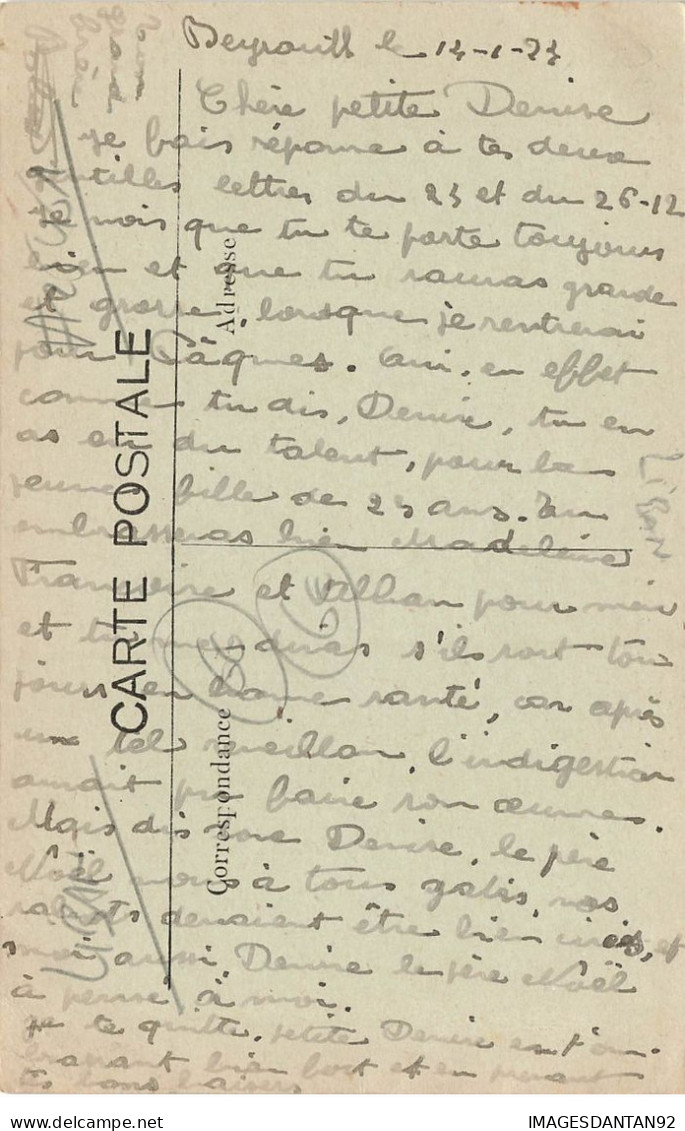 Beyrouth le 14-1-24
Chère petite Denise
je fais réponse à tes deux
gentilles lettres du 23 et du 26-12
je vois que tu te porte toujours
bien et que tu seras grande
et grosse, lorsque je rentrerai
pour Pâques. Oui, en effet
comme tu dis, Denise, tu en
as eu du talent, pour la
jeune fille de 23 ans. Tu
embrasseras bien Madeleine
Françoise et pour moi
et tu me diras s'ils sont tou
jours en bonne santé, car après
un tel réveillon, l'indigestion
aurait pu faire son œuvre.
Mais dis donc Denise, le père
Noël vous à tous gatés, vos
sabots devaient être bien cirés, et
moi aussi Denise le père Noël
à pensé à moi.
je te quitte, petite Denise en t'em-
brassant bien fort et en
tes bons baisers
Ton
grand
frère
CARTE POSTALE
Adresse
Correspondance
LIBAN
IMAGESDANTAN92